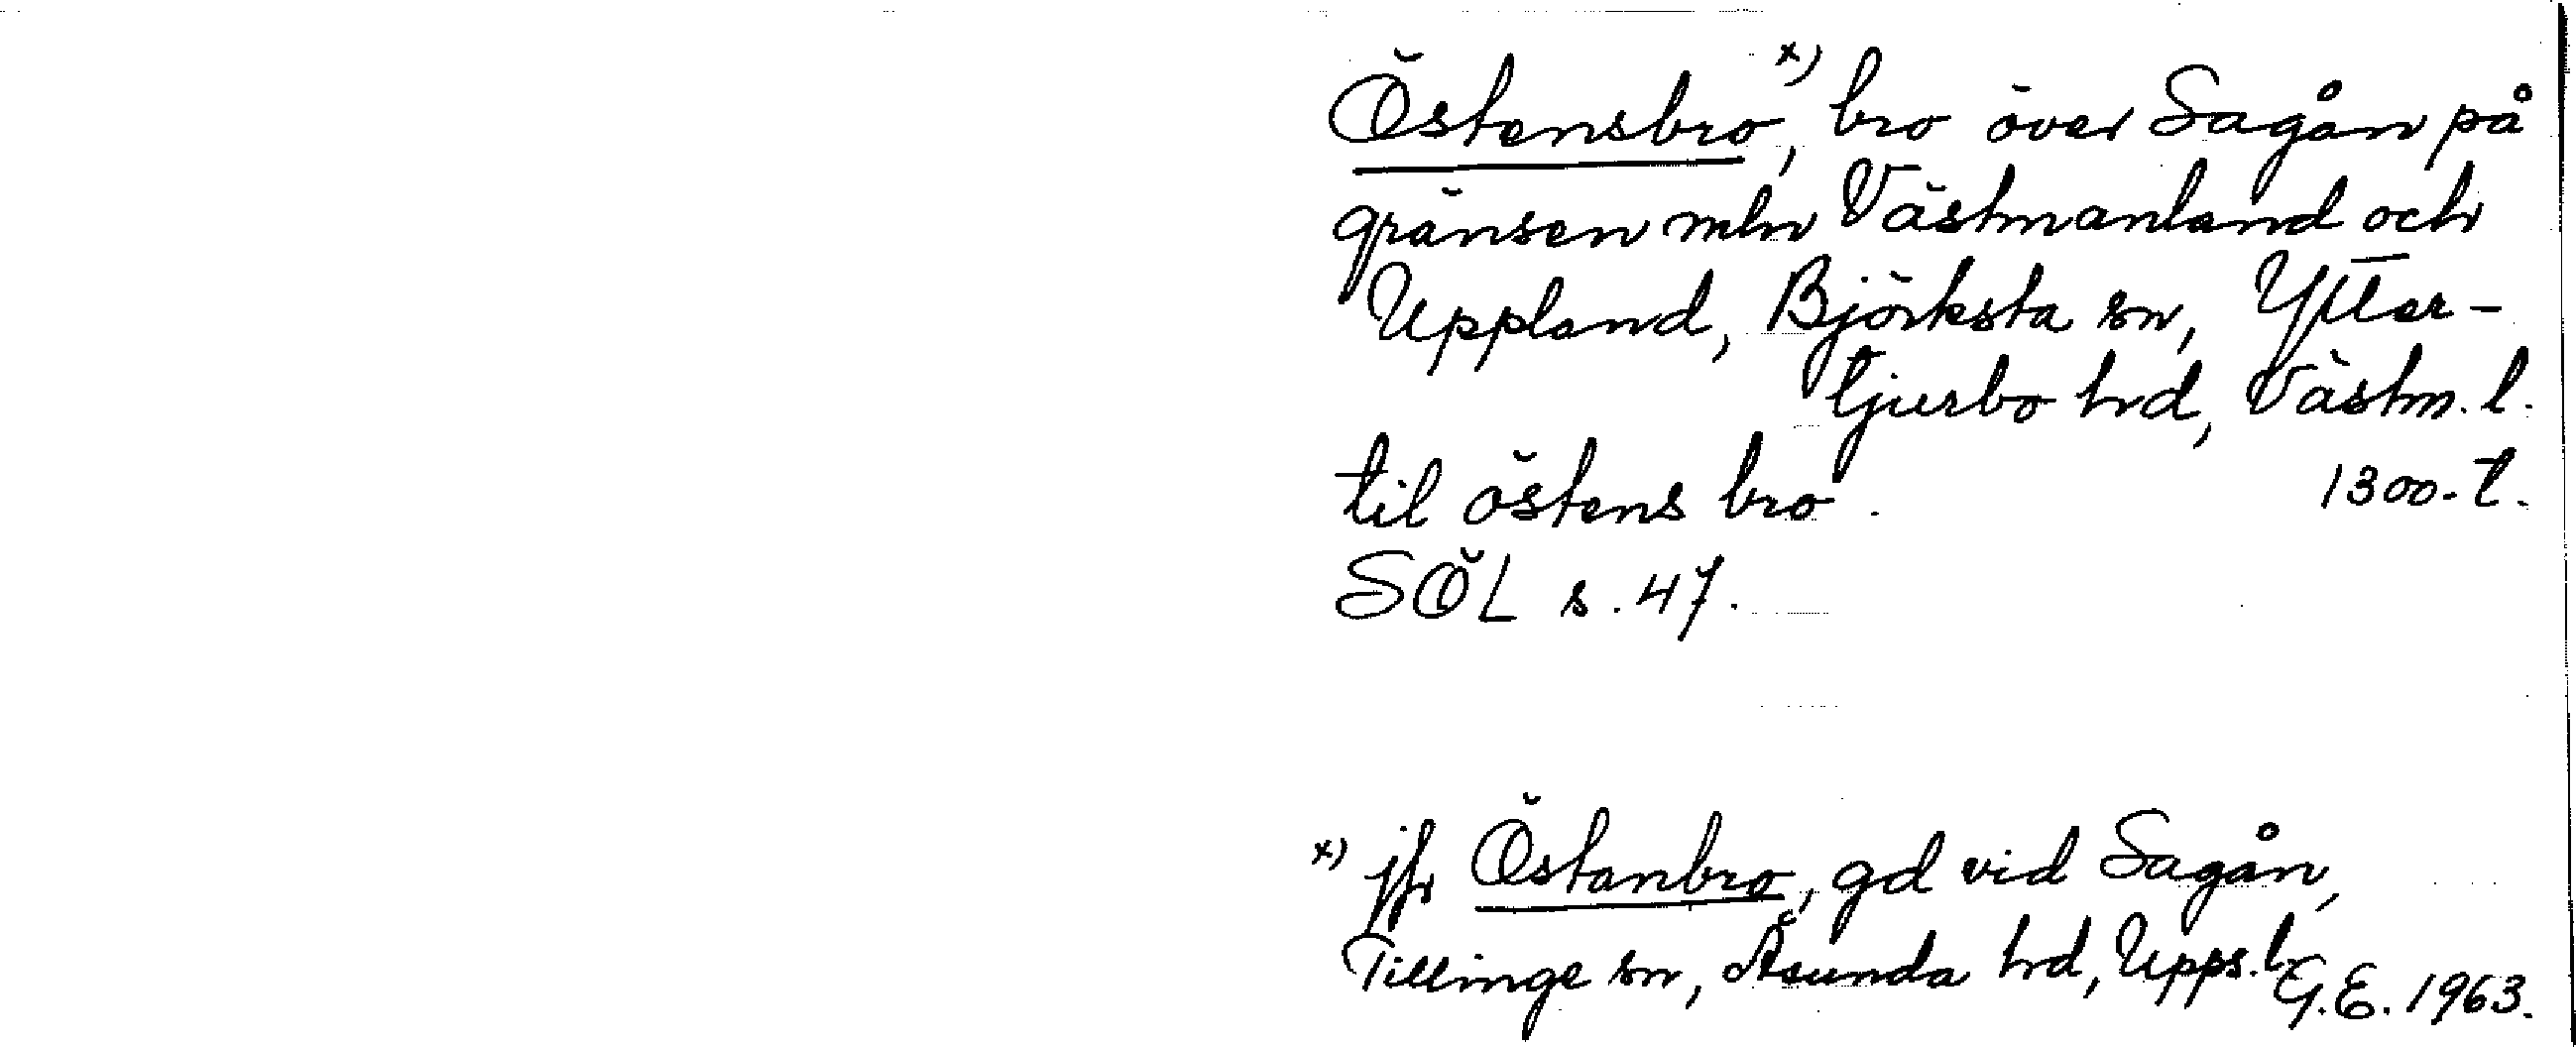 Östensbro, x) bro över Sagån på
gränsen mln Västmanland och
Uppland, Björksta sn, Ytter-
tjurbo hd, Västm. l.
til östens bro. 1300-t.
SÖL s. 47.
x) jfr Östanbro, gd vid Sagån,
Tillinge sn, Åsunda hd, Upps. l.
G.E. 1963.